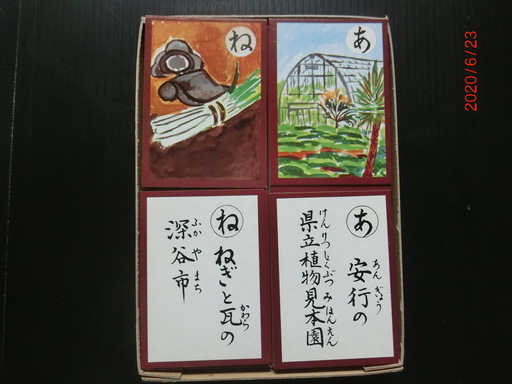 ね
あ
2020/6/23
あ
安行の
あんぎょう
県立植物見本園
けんりつしょくぶつみほんえん
ね
ねぎと瓦の
かわら
深谷市
ふかやまち